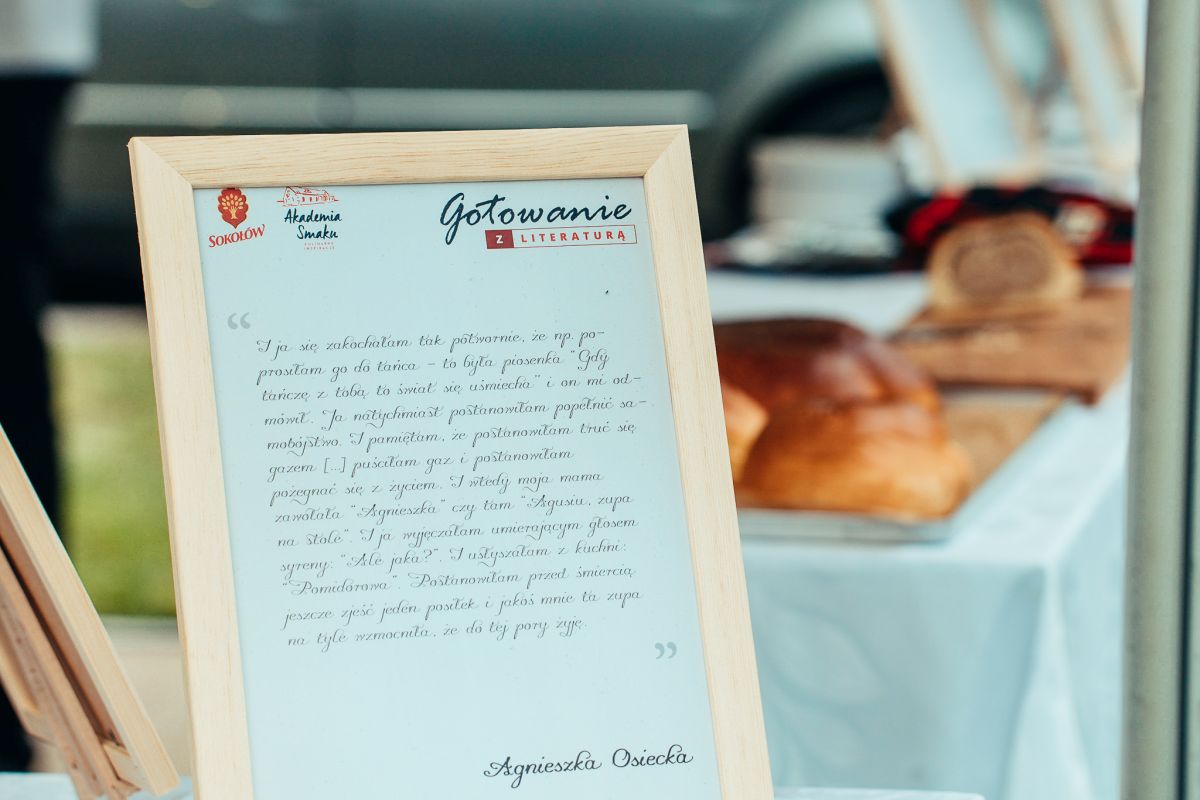 SOKOŁÓW
Akademia
Smaku
KULINARNE
INSPIRACJE
Gotowanie
Z LITERATURĄ
“
I ja się zakochałam tak potwornie, że np. po-
prosiłam go do tańca – to była piosenka “Gdy
tańczę z tobą to świat się uśmiecha” i on mi od-
mówił. Ja natychmiast postanowiłam popełnić sa-
mobójstwo. I pamiętam, że postanowiłam truć się
gazem [...] puściłam gaz i postanowiłam
pożegnać się z życiem. I wtedy moja mama
zawołała “Agnieszka” czy tam “Agusiu, zupa
na stole”. I ja wyjęczałam umierającym głosem
syreny: “Ale jaka?”. I usłyszałam z kuchni:
“Pomidorowa”. Postanowiłam przed śmiercią
jeszcze zjeść jeden posiłek i jakoś mnie ta zupa
na tyle wzmocniła, że do tej pory żyję.
”
Agnieszka Osiecka